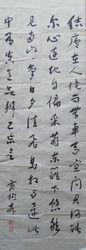 結廬在人境而無車馬喧問君何能
爾心遠地自偏採菊東籬下悠然
見南山山氣日夕佳飛鳥相與還此
中有真意欲辨已忘言